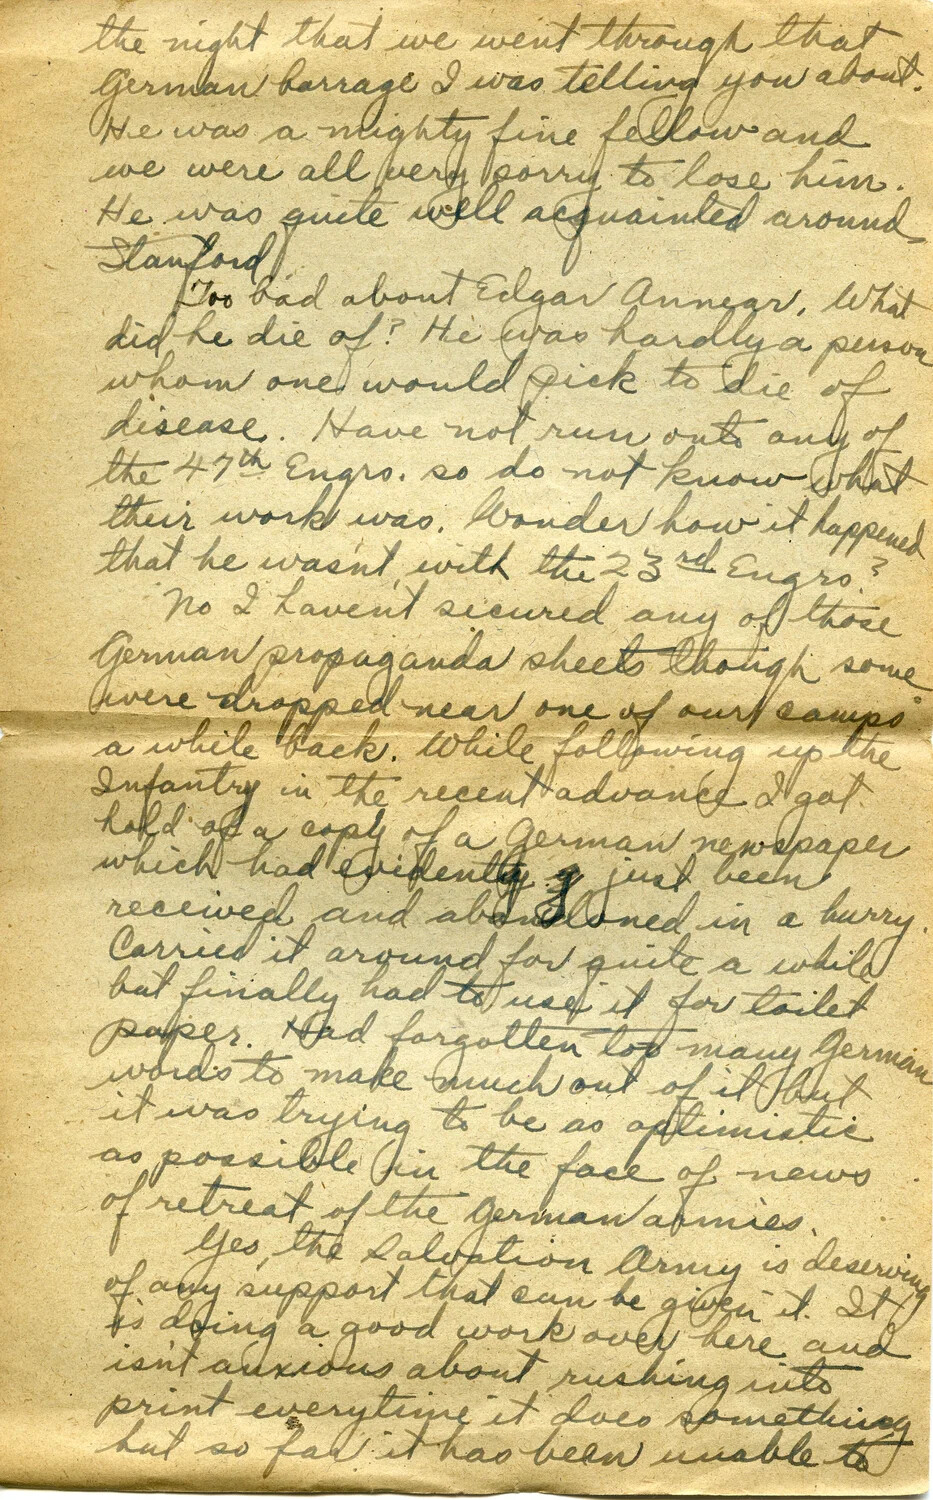 the night that we went through that
German barrage I was telling you about.
He was a mighty fine fellow and
we were all very sorry to lose him.
He was quite well acquainted around
Stanford
Too bad about Edgar Annear. What
did he die of? He was hardly a person
whom one would pick to die of
disease. Have not run onto any of
the 47th Engrs. so do not know what
their work was. Wonder how it happened
that he wasn't with the 23rd Engrs?
No I haven't secured any of those
German propaganda sheets though some
were dropped near one of our camps
a while back. While following up the
Infantry in the recent advance I got
hold of a copy of a German newspaper
which had evidently just been
received and abandoned in a hurry.
Carried it around for quite a while
but finally had to use it for toilet
paper. Had forgotten too many German
words to make much out of it but
it was trying to be as optimistic
as possible in the face of news
of retreat of the German armies.
Yes, the Salvation Army is deserving
of any support that can be given it. It
is doing a good work over here and
isn't anxious about rushing into
print everytime it does something
but so far it has been unable to